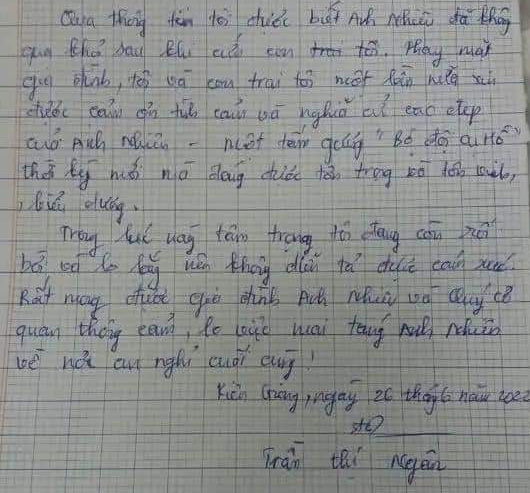 Qua thông tin tôi được biết Anh Nhiên đã không
qua khỏi sau khi cứu con trai tôi. Thay mặt
gia đình, tôi và con trai tôi một lần nữa xin
được cảm ơn tình cảm và nghĩa cử cao đẹp
của Anh Nhiên - một tấm gương "Bộ đội cụ Hồ"
thời kỳ mới mà đáng được tôn trọng và tôn vinh,
biểu dương.
Trong lúc này tâm trạng tôi đang còn rối
bời và lo lắng nên không diễn tả được cảm xúc.
Rất mong được gia đình Anh Nhiên và Quý cơ
quan thông cảm, lo việc mai táng Anh Nhiên
về nơi an nghỉ cuối cùng!
Kiên Giang, ngày 26 tháng 6 năm 2022
Trần thị Ngân